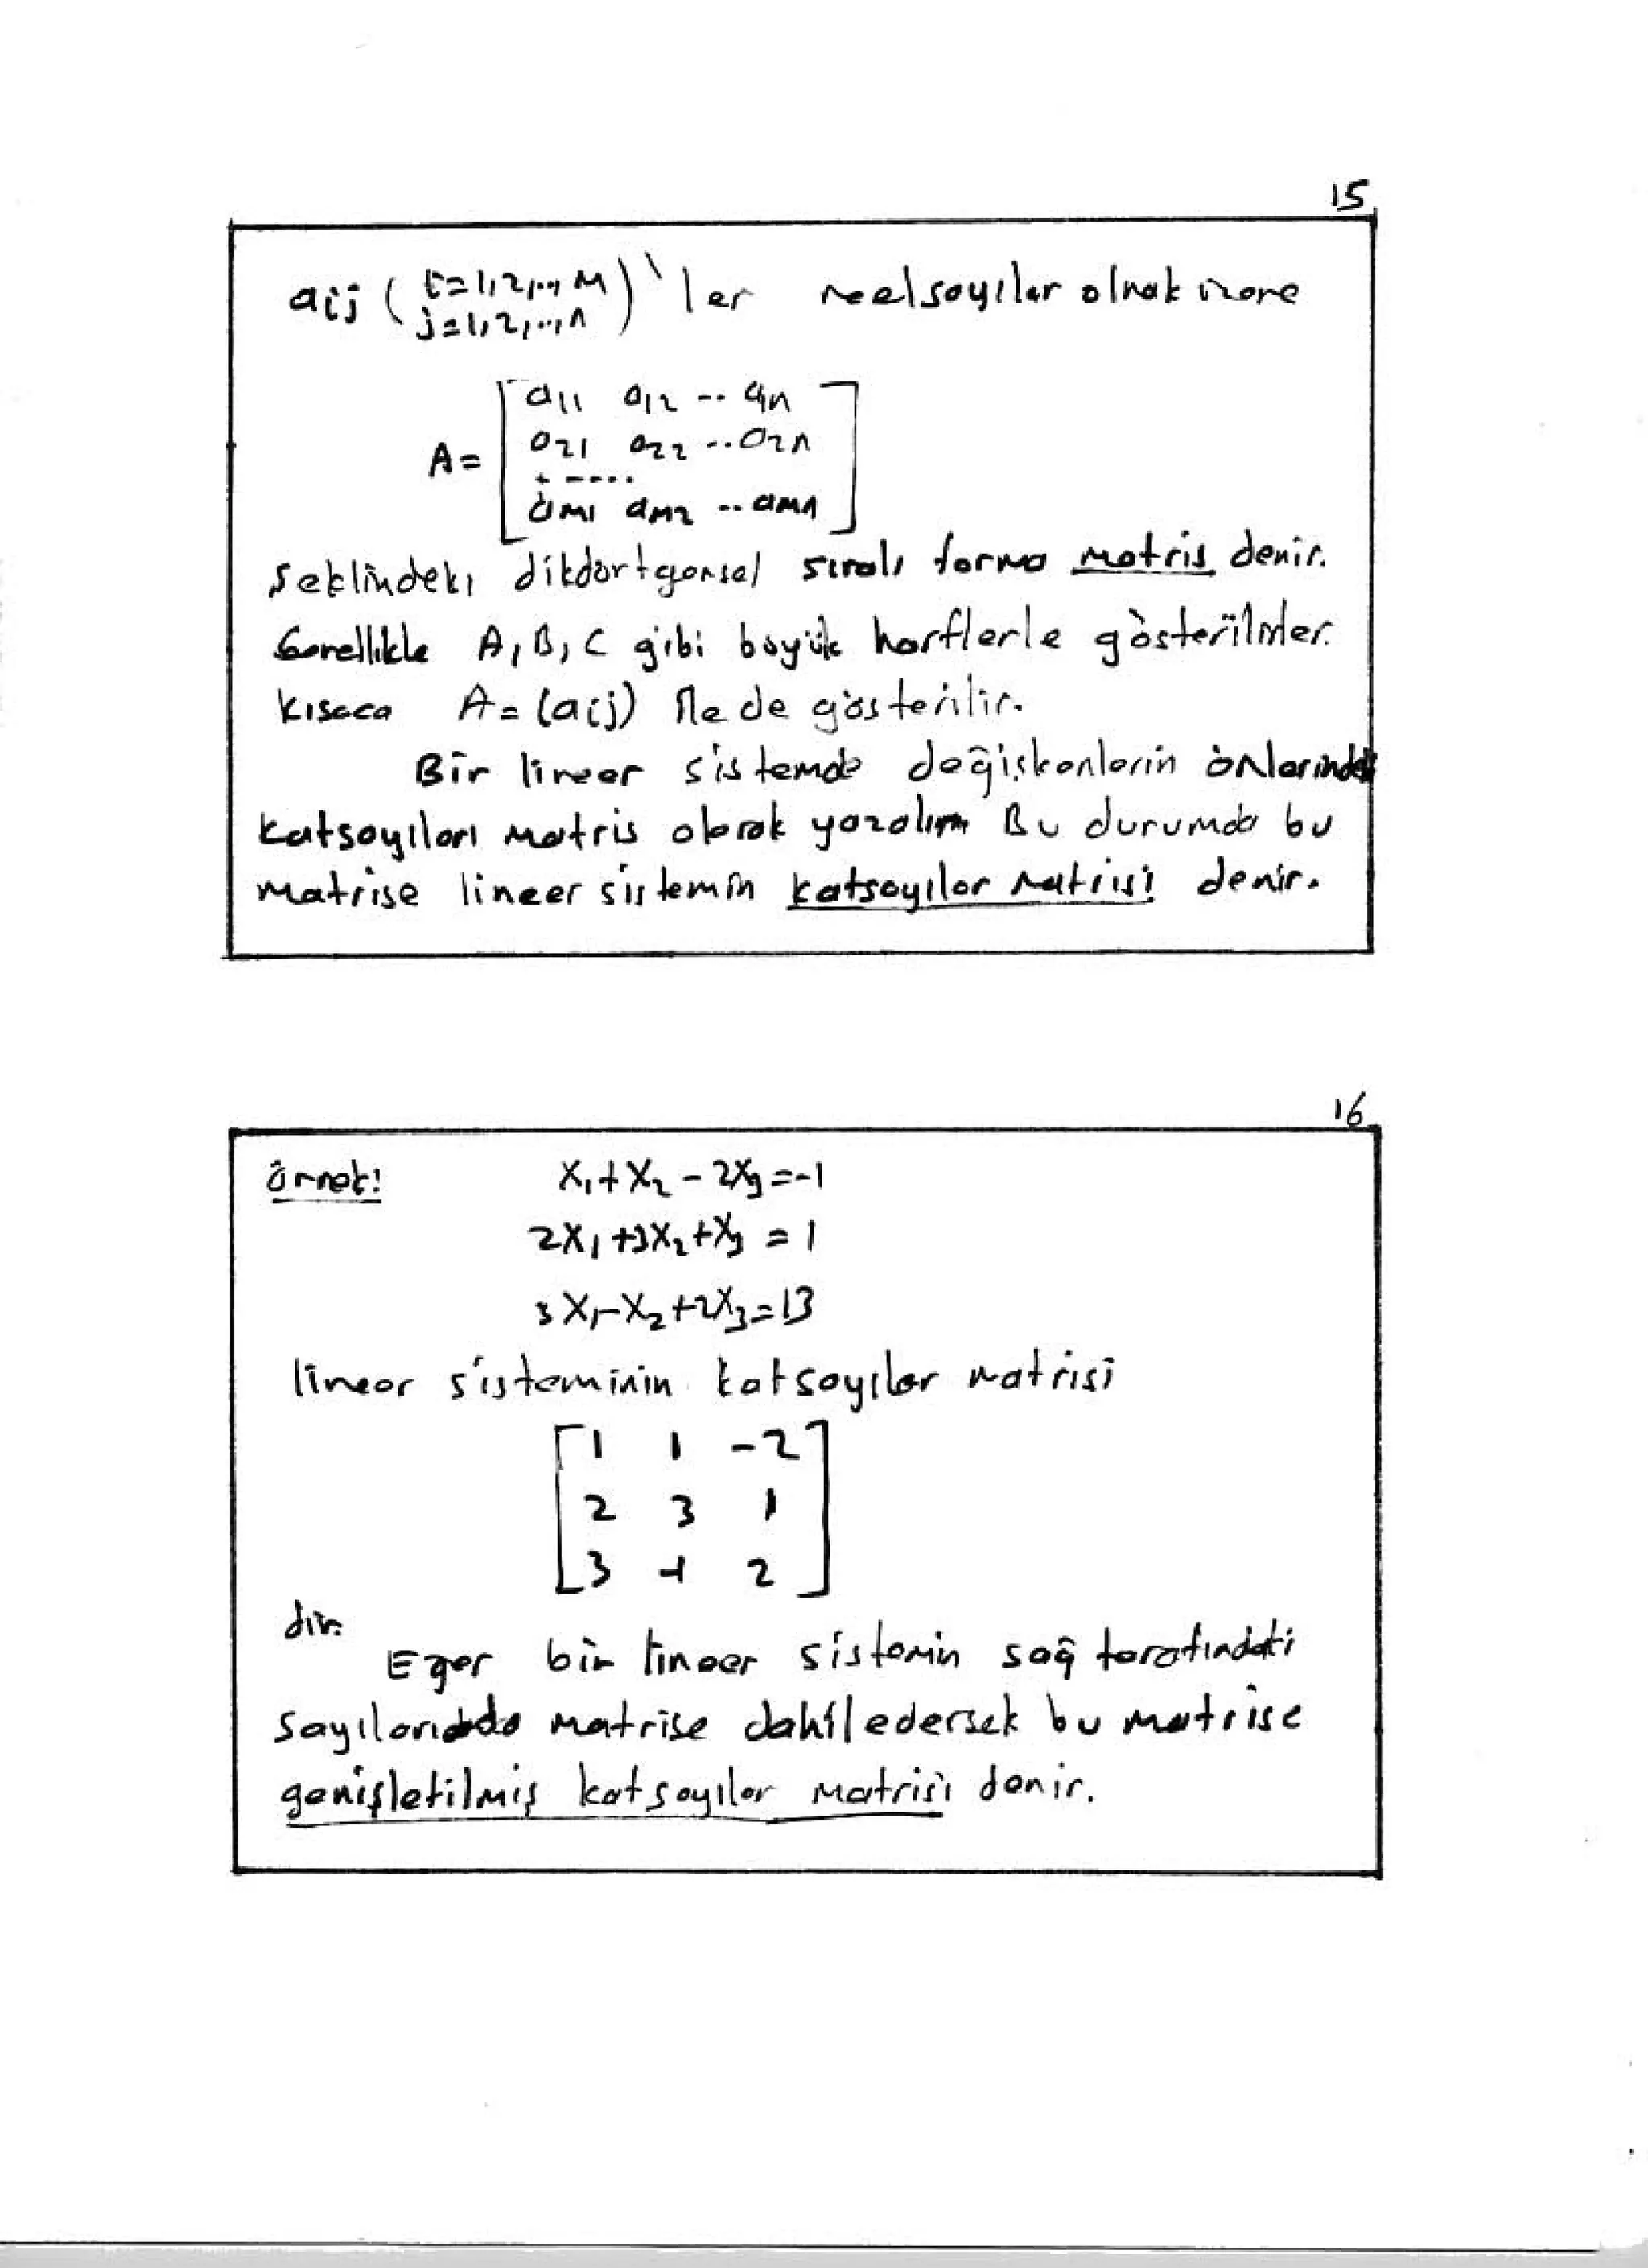 15
aij (i=1,2,..,m
j=1,2,...,n)'ler reel sayılar olmak üzere
a11 a12 .. a1n
a21 a22 .. a2n
A=
. -----
am1 am2 .. amn
şeklindeki dikdörtgensel sıralı forma matris denir.
Genellikle A, B, C gibi büyük harflerle gösterilirler.
Kısaca A=(aij) ile de gösterilir.
Bir lineer sistemde değişkenlerin önlerindeki
katsayıları matris olarak yazalım Bu durumda bu
matrise lineer sistemin katsayılar matrisi denir.
16
örnek:
x1+x2-2x3=-1
2x1+3x2+x3=1
3x1-x2+2x3=13
lineer sisteminin katsayılar matrisi
1 1 -2
2 3 1
3 -1 2
dir.
Eğer bir lineer sistemin sağ tarafındaki
sayılarıda matrise dahil edersek bu matrise
genişletilmiş katsayılar matrisi denir.